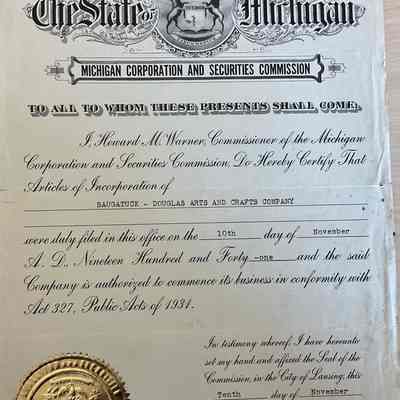 The State of Michigan
MICHIGAN CORPORATION AND SECURITIES COMMISSION
TO ALL TO WHOM THESE PRESENTS SHALL COME:
I, Howard M. Warner, Commissioner of the Michigan
Corporation and Securities Commission, Do Hereby Certify That
Articles of Incorporation of
SAUGATUCK - DOUGLAS ARTS AND CRAFTS COMPANY
were duly filed in this office on the 10th day of November
A. D., Nineteen Hundred and Forty -one and the said
Company is authorized to commence its business in conformity with
Act 327, Public Acts of 1931.
In testimony whereof, I have hereunto
set my hand and affixed the Seal of the
Commission, in the City of Lansing, this
Tenth day of November